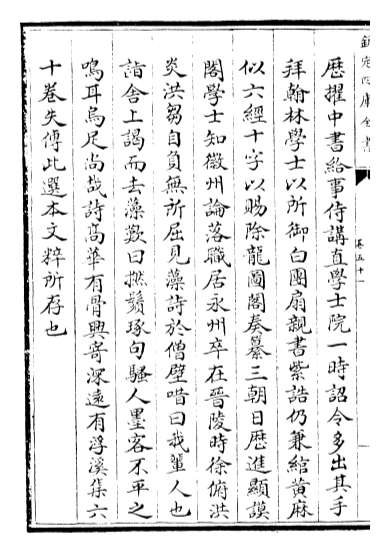 欽定四庫全書
卷五十一
歴擢中書給事侍講直學士院一時詔令多出其手
拜翰林學士以所御白團扇親書紫誥仍兼綰黄麻
似六經十字以賜除龍圖閣奏纂三朝日歴進顯謨
閣學士知徽州論落職居永州卒在晉陵時徐俯洪
炎洪芻自負無所屈見藻詩於僧壁喈曰我輩人也
詣舍上謁而去藻歎曰撚鬚琢句騷人墨客不平之
鳴耳烏足尚哉詩髙華有骨興寄深遠有浮溪集六
十卷失傳此選本文粹所存也